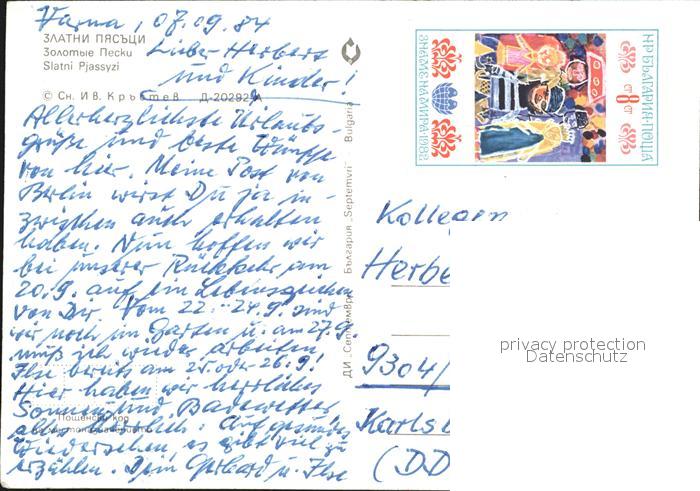 Varna, 07.09.84
ЗЛАТНИ ПЯСЪЦИ
Золотые Пески
Slatni Pjassyzi
Lieber Herbert
und Kinder!
© Сн. Ив. Кръстев Д-20292А
Allerherzlichste Urlaubs-
grüße und beste Wünsche
von hier. Meine Post von
Berlin wirst Du ja in-
zwischen auch erhalten
haben. Nun hoffen wir
bei unserer Rückkehr am
20.9. auf ein Lebenszeichen
von Dir. Vom 22.-24.9. sind
wir noch im Garten u. am 27.9.
muß ich wieder arbeiten,
Ilse bereits am 25. oder 26.9!
Hier haben wir herrliches
Sonnen- und Badewetter,
alles herrlich! Auf gesundes
Wiedersehen, es gibt viel zu
erzählen. Dein Gerhard u. Ilse
Пощенски код
ДИ „Септември" България „Septemvri" Bulgaria
ЗНАМЕ НА МИРА·1982
НР БЪЛГАРИЯ·ПОЩА
8 ст
Kollegen
Herbe
9304/
Karls
(DD
privacy protection
Datenschutz